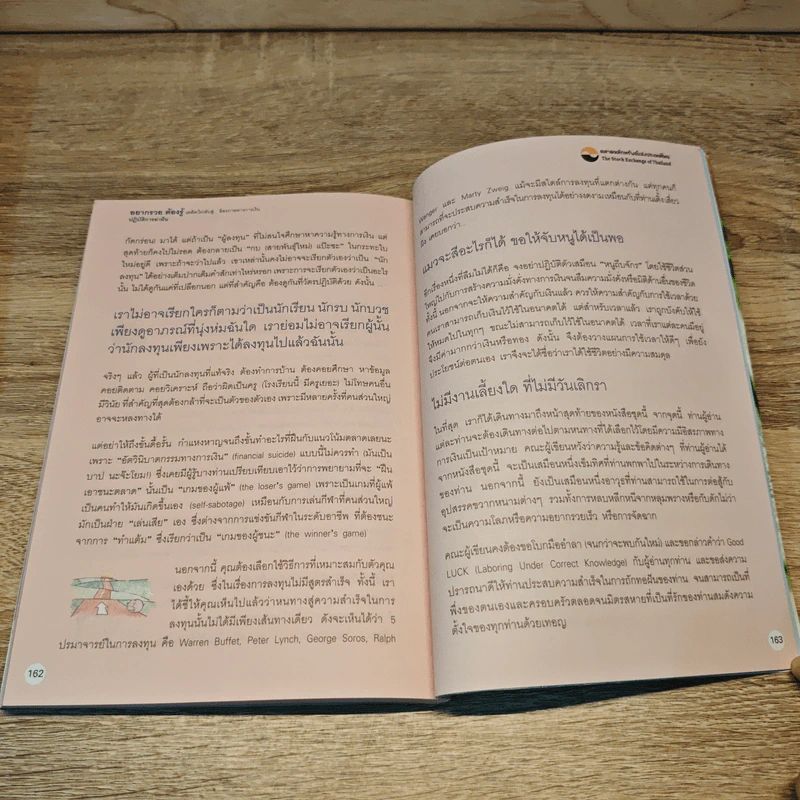 อยากรวย ต้องรู้
ปฏิบัติการล่าฝัน
กัดกร่อน) มาได้ แต่ถ้าเป็น "ผู้ลงทุน" ที่ไม่สนใจศึกษาหาความรู้ทางการเงิน แต่
สุดท้ายก็คงไปไม่รอด ต้องกลายเป็น "กบ (สายพันธุ์ใหม่) แป๊ะซะ" ในกระทะใบ
ใหม่อยู่ดี เพราะถ้าจะว่าไปแล้ว เขาเหล่านั้นคงไม่อาจจะเรียกตัวเองว่าเป็น "นัก
ลงทุน" ได้อย่างเต็มปากเต็มคำสักเท่าไหร่หรอก เพราะการจะเรียกตัวเองว่าเป็นอะไร
นั้น ไม่ได้ดูกันแค่ที่เปลือกนอก แต่ที่สำคัญคือ ต้องดูกันที่วัตรปฏิบัติด้วย ดังนั้น ...
เราไม่อาจเรียกใครก็ตามว่าเป็นนักเรียน นักรบ นักบวช
เพียงดูอาภรณ์ที่นุ่งห่มฉันใด เราย่อมไม่อาจเรียกผู้นั้น
ว่านักลงทุนเพียงเพราะได้ลงทุนไปแล้วฉันนั้น
จริงๆ แล้ว ผู้ที่เป็นนักลงทุนที่แท้จริง ต้องทำการบ้าน ต้องคอยศึกษา หาข้อมูล
คอยติดตาม คอยวิเคราะห์ ถือว่าผิดเป็นครู (โรงเรียนนี้ มีครูเยอะ) ไม่โทษคนอื่น
มีวินัย ที่สำคัญที่สุดต้องกล้าที่จะเป็นตัวของตัวเอง เพราะมีหลายครั้งที่คนส่วนใหญ่
อาจจะหลงทางได้
แต่อย่าให้ถึงขั้นดื้อรั้น กำแหงหาญจนถึงขั้นทำอะไรที่ฝืนกับแนวโน้มตลาดเลยนะ
เพราะ "อัตวินิบาตกรรมทางการเงิน" (financial suicide) แบบนี้ไม่ควรทำ (มันเป็น
บาป นะจ๊ะโยม!) ซึ่งเคยมีผู้รู้บางท่านเปรียบเทียบเอาไว้ว่าการพยายามที่จะ "ฝืน
เอาชนะตลาด" นั้นเป็น "เกมของผู้แพ้" (the loser's game) เพราะเป็นเกมที่ผู้แพ้
เป็นคนทำให้มันเกิดขึ้นเอง (self-sabotage) เหมือนกับการเล่นกีฬาที่คนส่วนใหญ่
มักเป็นฝ่าย "เล่นเสีย" เอง ซึ่งต่างจากการแข่งขันกีฬาในระดับอาชีพ ที่ต้องชนะ
จากการ "ทำแต้ม" ซึ่งเรียกว่าเป็น "เกมของผู้ชนะ" (the winner's game)
นอกจากนี้ คุณต้องเลือกใช้วิธีการที่เหมาะสมกับตัวคุณ
เองด้วย ซึ่งในเรื่องการลงทุนไม่มีสูตรสำเร็จ ทั้งนี้ เรา
ได้ชี้ให้คุณเห็นไปแล้วว่าหนทางสู่ความสำเร็จในการ
ลงทุนนั้นไม่ได้มีเพียงเส้นทางเดียว ดังจะเห็นได้ว่า 5
ปรมาจารย์ในการลงทุน คือ Warren Buffet, Peter Lynch, George Soros, Ralph
162
ตลาดหลักทรัพย์แห่งประเทศไทย
The Stock Exchange of Thailand
Wanger และ Marty Zweig แม้จะมีสไตล์การลงทุนที่แตกต่างกัน แต่ทุกคนก็
สามารถที่จะประสบความสำเร็จในการลงทุนได้อย่างงดงามเหมือนกับที่ท่านเติ้งเสี่ยว
ผิง เคยบอกว่า...
แมวจะสีอะไรก็ได้ ขอให้จับหนูได้เป็นพอ
อีกเรื่องหนึ่งที่ลืมไม่ได้ก็คือ จงอย่าปฏิบัติตัวเสมือน "หนูถีบจักร" โดยใช้ชีวิตส่วน
ใหญ่ไปกับการสร้างความมั่งคั่งทางการเงินจนลืมความมั่งคั่งหรือมิติด้านอื่นของชีวิต
ทั้งนี้ นอกจากจะให้ความสำคัญกับเงินแล้ว ควรให้ความสำคัญกับการใช้เวลาด้วย
คนเราสามารถเก็บเงินไว้ใช้ในอนาคตได้ แต่สำหรับเวลาแล้ว เราถูกบังคับให้ใช้
ให้หมดไปในทุกๆ ขณะไม่สามารถเก็บไว้ใช้ในอนาคตได้ เวลาที่เราแต่ละคนมีอยู่
จึงมีค่ามากกว่าเงินหรือทอง ดังนั้น จึงต้องวางแผนการใช้เวลาให้ดีๆ เพื่อยัง
ประโยชน์ต่อตนเอง เราจึงจะได้ชื่อว่าเราได้ใช้ชีวิตอย่างมีความสมดุล
ไม่มีงานเลี้ยงใด ที่ไม่มีวันเลิกรา
ในที่สุด เราก็ได้เดินทางมาถึงหน้าสุดท้ายของหนังสือชุดนี้ จากจุดนี้ ท่านผู้อ่าน
แต่ละท่านจะต้องเดินทางต่อไปตามหนทางที่ได้เลือกไว้โดยมีความมีอิสรภาพทาง
การเงินเป็นเป้าหมาย คณะผู้เขียนหวังว่าความรู้และข้อคิดต่างๆ ที่ท่านผู้อ่านได้
จากหนังสือชุดนี้ จะเป็นเสมือนหนึ่งเข็มทิศที่ท่านพกพาไปในระหว่างการเดินทาง
ของท่าน นอกจากนี้ ยังเป็นเสมือนหนึ่งอาวุธที่ท่านสามารถใช้ในการต่อสู้กับ
อุปสรรคขวากหนามต่างๆ รวมทั้งการหลบหลีกหนีจากหลุมพรางหรือกับดักไม่ว่า
จะเป็นความโลภหรือความอยากรวยเร็ว หรือการติดฉาก
คณะผู้เขียนคงต้องขอโบกมืออำลา (จนกว่าจะพบกันใหม่) และขอกล่าวคำว่า Good
LUCK (Laboring Under Correct Knowledge) กับผู้อ่านทุกท่าน และขอส่งความ
ปรารถนาดีให้ท่านประสบความสำเร็จในการถักทอฝันของท่าน จนสามารถเป็นที่
พึ่งของตนเองและครอบครัวตลอดจนมิตรสหายที่เป็นที่รักของท่านสมดังความ
ตั้งใจของทุกท่านด้วยเทอญ
163